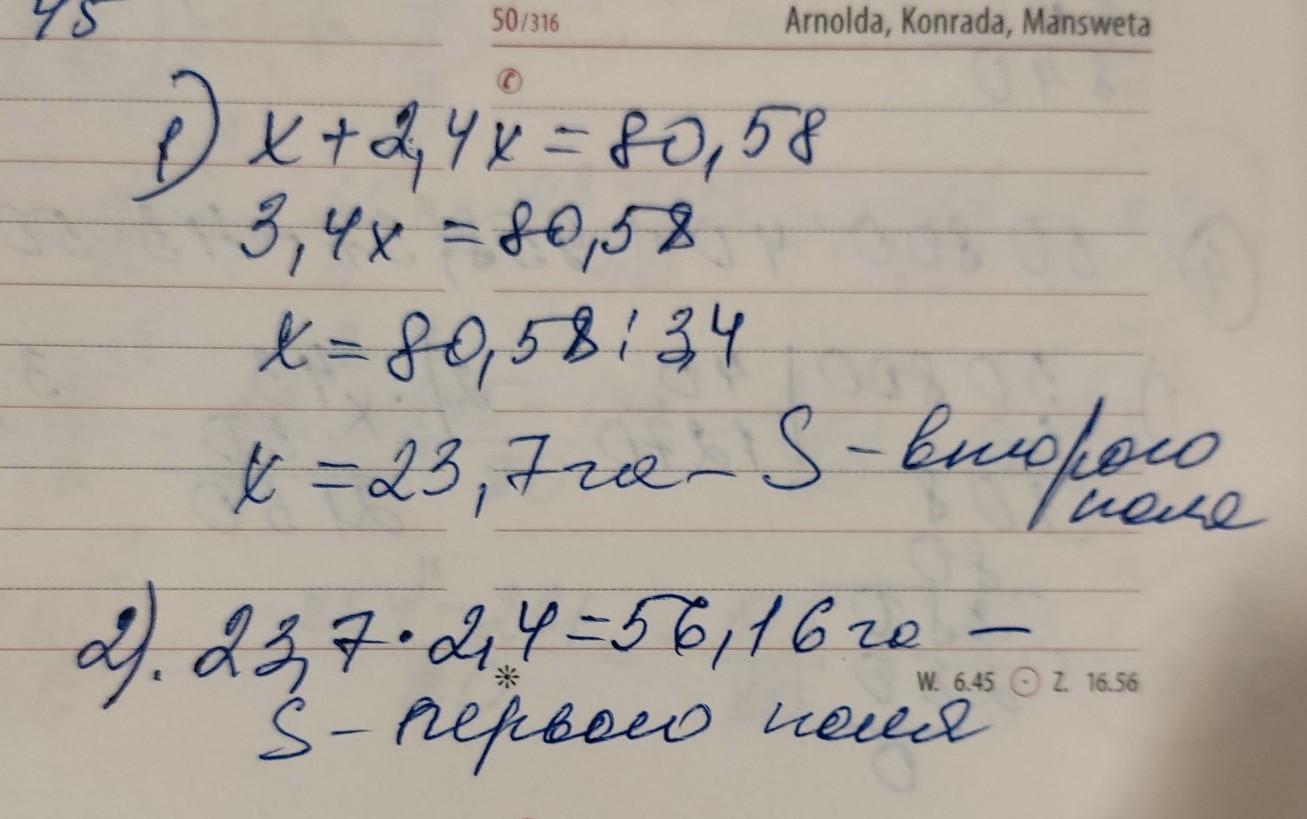 45
50/316
Arnolda, Konrada, Mansweta
1) x + 2,4x = 80,58
3,4x = 80,58
x = 80,58 : 3,4
x = 23,7 га – S – второго
поля
2). 23,7 · 2,4 = 56,16 га –
W. 6.45 Z. 16.56
S – первого поля